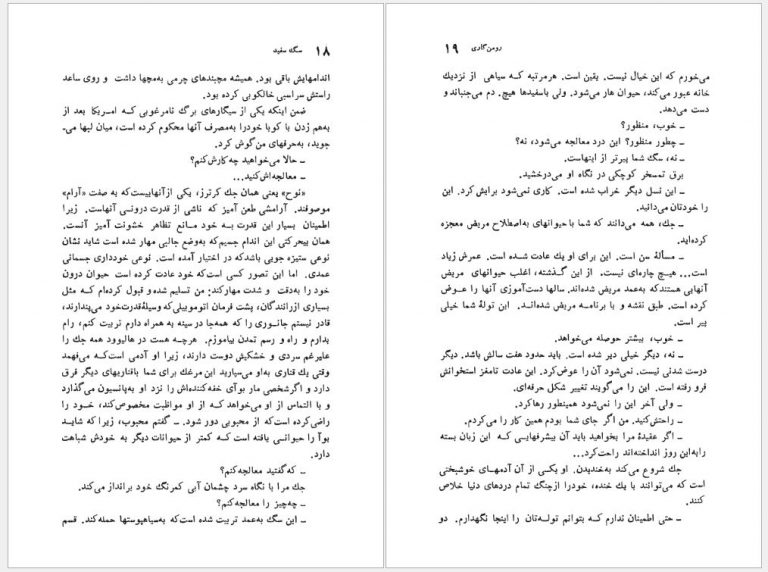 ۱۸ سگ سفید
اندامهایش باقی بود. همیشه مچبندهای چرمی به‌مچها داشت و روی ساعد
راستش سراسبی خالکوبی کرده بود.
ضمن اینکه یکی از سیگارهای برگ نامرغوبی که امریکا بعد از
به‌هم زدن با کوبا خودرا به‌مصرف آنها محکوم کرده است، میان لبها می‌-
جوید، به‌حرفهای من گوش کرد.
ـ حالا می‌خواهید چه‌کارش‌کنم؟
ـ معالجه‌اش‌کنید...
«نوح» یعنی همان جك کرترز، یکی ازآنهاییست‌که به صفت «آرام»
موصوفند. آرامشی طعن آمیز که ناشی از قدرت درونی آنهاست. زیرا
اطمینان بسیار این قدرت به خود مانع تظاهر خشونت آمیز آنست.
همان بیحرکتی این اندام جسیم‌که به‌وضع جالبی مهار شده است شاید نشان
نوعی ستیزه جویی باشدکه در اختیار آمده است. نوعی خودداری جسمانی
عمدی. اما این تصور کسی است‌که خود عادت کرده است حیوان درون
خود را به‌دقت و شدت مهارکند: من تسلیم شده و قبول کرده‌ام که مثل
بسیاری ازرانندگان، پشت فرمان اتوموبیلی‌که وسیلهٔ‌قدرت‌خود می‌پندارند،
قادر نیستم جانوری را که همه‌جا درسینه به همراه دارم تربیت کنم، رام
بدارم و راه و رسم تمدن بیاموزم. هرچه هست در هالیوود همه جك را
علیرغم سردی و خشکیش دوست دارند، زیرا او آدمی است‌که می‌فهمد
وقتی یك قناری به‌او می‌سپارید این مرغك برای شما باقناریهای دیگر فرق
دارد و اگرشخصی مار بوآی خفه‌کننده‌اش را نزد او به‌پانسیون می‌گذارد
و با التماس از او می‌خواهد که از او مواظبت مخصوص‌کند، خود را
راضی‌کرده است‌که از محبوبی دور شود. ـ گفتم محبوب، زیراکه شاید
بوآ را حیوانی یافته است که کمتر از حیوانات دیگر به خودش شباهت
دارد.
ـ که‌گفتید معالجه‌کنم؟
جك مرا با نگاه سرد چشمان آبی کمرنگ خود برانداز می‌کند.
ـ چه‌چیز را معالجه‌کنم؟
ـ این سگ به‌عمد تربیت شده است‌که به‌سیاهپوستها حمله‌کند. قسم
رومن‌گاری ۱۹
می‌خورم که این خیال نیست. یقین است. هرمرتبه که سیاهی از نزدیك
خانه عبور می‌کند، حیوان هار می‌شود. ولی باسفیدها هیچ. دم می‌جنباند و
دست می‌دهد.
ـ خوب، منظور؟
ـ چطور منظور؟ این درد معالجه می‌شود، نه؟
ـ نه، سگ شما پیرتر از اینهاست.
برق تمسخر کوچکی در نگاه او می‌درخشید.
ـ این نسل دیگر خراب شده است. کاری نمی‌شود برایش کرد. این
را خودتان می‌دانید.
ـ جك، همه می‌دانند که شما با حیوانهای به‌اصطلاح مریض معجزه
کرده‌اید.
ـ مسألهٔ سن است. این برای او یك عادت شده است. عمرش زیاد
است... هیچ چاره‌ای نیست. از این گذشته، اغلب حیوانهای مریض
آنهایی هستندکه به‌عمد مریض شده‌اند. سالها دست‌آموزی آنها را عوض
کرده است. طبق نقشه و با برنامه مریض شده‌اند. این تولهٔ شما خیلی
پیر است.
ـ خوب، بیشتر حوصله می‌خواهد.
ـ نه، دیگر خیلی دیر شده است. باید حدود هفت سالش باشد. دیگر
درست شدنی نیست. نمی‌شود آن را عوض‌کرد. این عادت تامغز استخوانش
فرو رفته است. این را می‌گویند تغییر شکل حرفه‌ای.
ـ ولی آخر این را نمی‌شود همینطور رهاکرد.
ـ راحتش‌کنید. من اگر جای شما بودم همین کار را می‌کردم.
ـ اگر عقیدهٔ مرا بخواهید باید آن بیشرفهایی که این زبان بسته
رابه‌این روز انداخته‌اند راحت‌کرد...
جك شروع می‌کند به‌خندیدن. او یکی از آن آدمهای خوشبختی
است که می‌توانند با یك خنده، خودرا ازچنگ تمام دردهای دنیا خلاص
کنند.
ـ حتی اطمینان ندارم که بتوانم توله‌تان را اینجا نگهدارم. دو